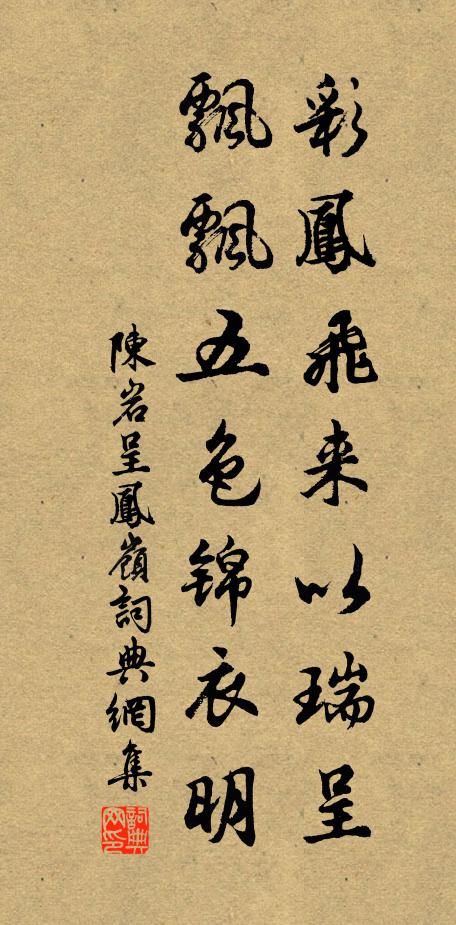 彩鳳飛来以瑞呈
飄飄五色錦衣明
陳岩呈鳳嶺詞典網集
詞典网印